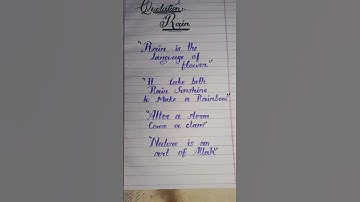 Quotation:-
Rain
"Rain is the
language of
flower"
"It take both
Rain Sunshine
to Make a Rainbow"
"After a storm
Come a clam"
"Nature is an
art of Allah"